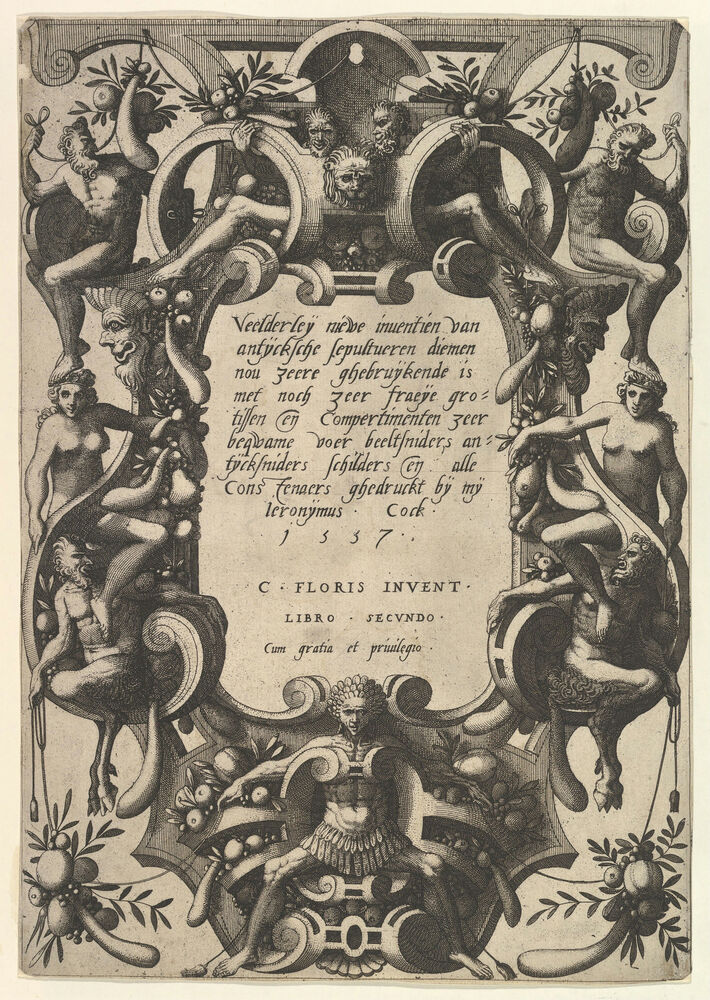 Veelderleÿ niewe inuentien van
antÿcksche sepultueren diemen
nou zeere ghebruÿkende is
met noch zeer fraeÿe gro=
tissen en Compertimenten zeer
beqwame voer beeltsniders an=
tÿcksniders schilders en alle
Constenaers ghedruckt bÿ mÿ
Ieronÿmus · Cock ·
1 5 5 7 ·
C · FLORIS INVENT ·
LIBRO · SECVNDO ·
Cum gratia et priuilegio ·